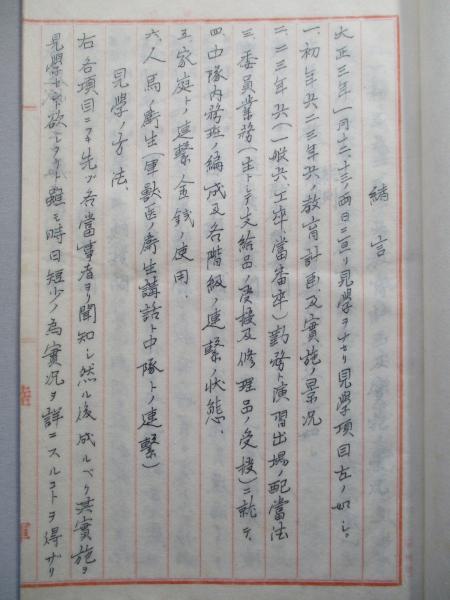 緒言
大正三年一月十二、十三ノ両日ニ亘リ見學ヲナセリ見學項目左ノ如シ。
一、初年兵二三年兵ノ教育計画及實施ノ景况
二、二三年兵(一般兵、工卒、當番卒)勤務ト演習出場ノ配當法
三、委員業務(主トシテ支給品ノ受授及修理品ノ受授)ニ就テ、
四、中隊内務班ノ編成及各階級ノ連繋ノ状態、
五、家庭トノ連繋、金銭ノ使用、
六、人馬ノ衛生(軍獣医ノ衛生講話ト中隊トノ連繋)
見學ノ方法、
右各項目ニ先ヅ各當事者ヨリ聞知シ然ル後成ルベク其實施ヲ
見學セント欲シタリト雖モ時日短少ノ為實况ヲ詳ニスルコトヲ得ザリ
陸
軍